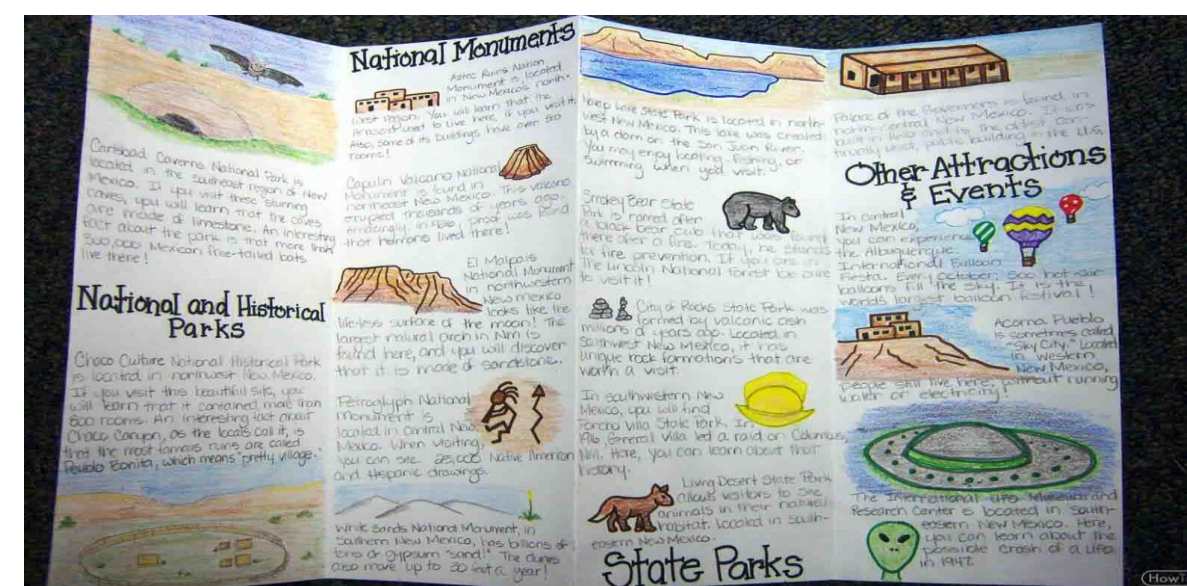 Carlsbad Caverns National Park is
located in the southeast region of New
Mexico. If you visit these stunning
caves, you will learn that the caves
are made of limestone. An interesting
fact about the park is that more than
300,000 Mexican free-tailed bats
live there!
National and Historical
Parks
Choco Culture National Historical Park
is located in northwest New Mexico.
If you visit this beautiful site, you
will learn that it contained more than
800 rooms. An interesting fact about
Choco Canyon, as the locals call it, is
that the most famous ruins are called
Pueblo Bonita, which means "pretty village."
National Monuments
Aztec Ruins Nation
Monument is located
in New Mexico's north-
west region. You will learn that the
Anasazi used to live here, if you visit it.
Also, some of its buildings have over 500
rooms!
Capulin Volcano National
Monument is found in
northeast New Mexico. This volcano
erupted thousands of years ago.
Amazingly, in 1926, proof was found
that humans lived there!
El Malpais
National Monument
in northwestern
New Mexico
looks like the
life-less surface of the moon! The
largest natural arch in NM is
found here, and you will discover
that it is made of sandstone.
Petroglyph National
Monument is
located in Central New
Mexico. When visiting,
you can see 25,000 Native American
and Hispanic drawings.
White Sands National Monument, in
Southern New Mexico, has billions of
tons of gypsum "sand." The dunes
also move up to 30 feet a year!
Lake State Park is located in north-
west New Mexico. This lake was created
by a dam on the San Juan River.
You may enjoy boating, fishing, or
swimming when you visit.
Smokey Bear State
Park is named after
a black bear cub that was found
there after a fire. Today, he stands
for fire prevention. If you are in
the Lincoln National Forest be sure
to visit it!
City of Rocks State Park was
formed by volcanic ash
millions of years ago. Located in
southwest New Mexico, it has
unique rock formations that are
worth a visit.
In southwestern New
Mexico, you will find
Poncho Villa State Park. In
1916, General Villa led a raid on Columbus,
NM. Here, you can learn about that
history.
Living Desert State Park
allows visitors to see
animals in their natural
habitat. Located in south-
eastern New Mexico.
State Parks
Palace of the Governers is found in
north-central New Mexico. It was
built in and is the oldest con-
tinually used, public building in the U.S.
Other Attractions
& Events
In central
New Mexico,
you can experience
the Albuquerque
International Balloon
Fiesta. Every October, 500 hot-air
balloons fill the sky. It is the
world's largest balloon festival!
Acoma Pueblo
is sometimes called
"Sky City." Located
in western
New Mexico,
people still live here, without running
water or electricity!
The International UFO Museum and
Research Center is located in south-
eastern New Mexico. Here,
you can learn about the
possible crash of a UFO
in 1947.
How